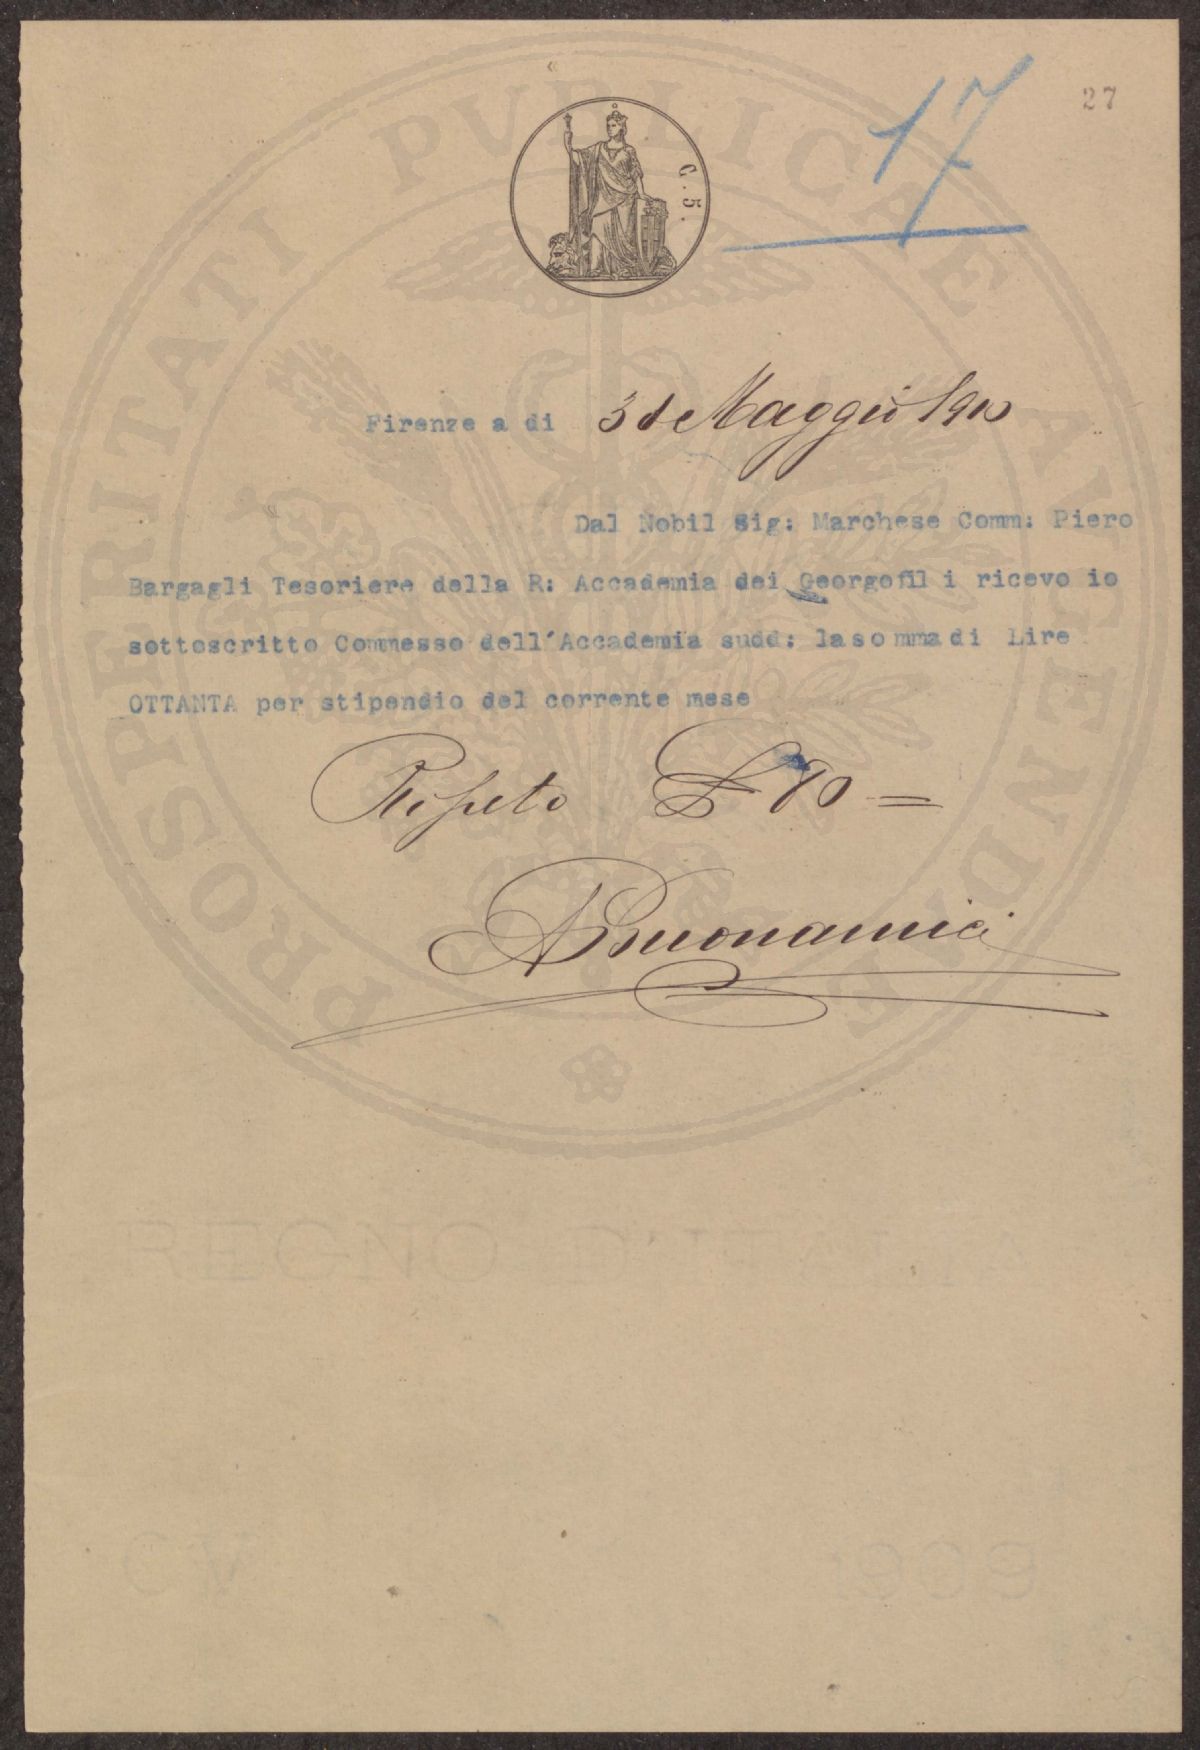 17
27
C. 5.
PROSPERITATI PUBLICAE AVGENDAE
Firenze a di 31 Maggio 1910
Dal Nobil Sig: Marchese Comm: Piero
Bargagli Tesoriere della R: Accademia dei Georgofil i ricevo io
sottoscritto Commesso dell'Accademia sudd: laso mmadi Lire
OTTANTA per stipendio del corrente mese
Ripeto £ 80 =
A Buonamici
REGNO D'ITALIA
1909